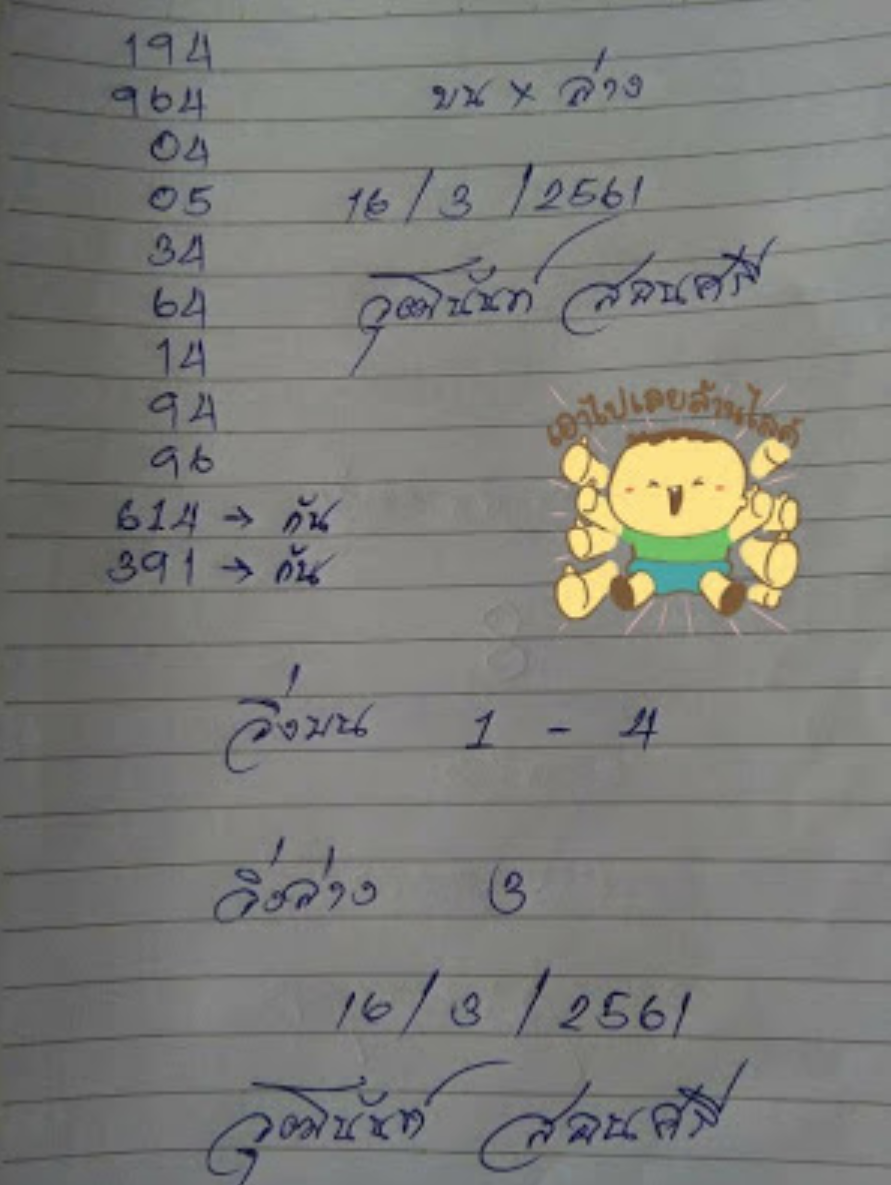 194
964
บน × ล่าง
04
05
16 / 3 / 2561
34
64
วุฒินันท์ สอนศรี
14
94
เอาไปเลยล้านไลค์
96
614 → กัน
391 → กัน
วิ่งบน 1 - 4
วิ่งล่าง 3
16 / 3 / 2561
วุฒินันท์ สอนศรี